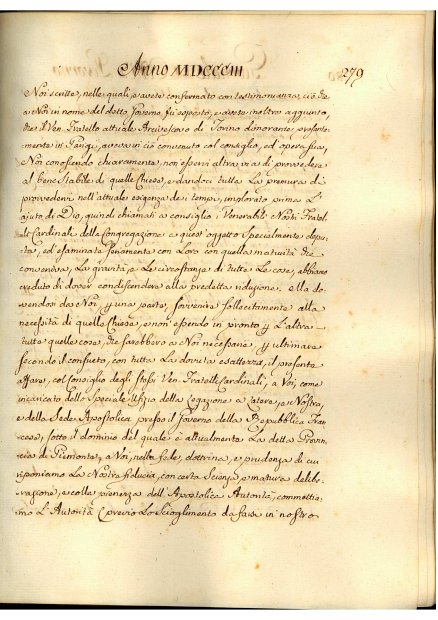 Anno MDCCCIII
279
Noi scritte, nelle quali avete confermato con testimonianza, ciò che
a Noi in nome del detto Governo fù esposto, e avete inoltre aggiunto,
che il Ven. Fratello attuale Arcivescovo di Torino dimorante presente-
mente in Parigi, aveva in ciò convenuto col consiglio, ed opera sua,
Noi conoscendo chiaramente non esservi altra via di provvedere
al bene stabile di quelle Chiese, e dandoci tutta la premura di
provvedervi nell'attuale esigenza de' tempi, implorato prima l'
ajuto di Dio, quindi chiamati a consiglio i Venerabili Nostri Fratel-
li Cardinali della Congregazione a quest'oggetto specialmente depu-
tata, ed esaminata pienamente con Loro con quella maturità che
conveniva, La gravità, e Le circostanze di tutte Le cose, abbiamo
creduto di dover condiscendere alla predetta riduzione. Ma do-
vendo da Noi p una parte, sovvenire sollecitamente alla
necessità di quelle Chiese, e non essendo in pronto p L'altra
tutte quelle cose, che sarebbero a Noi necessarie, p ultimare
secondo il consueto, con tutta La dovuta esattezza, il presente
affare, col consiglio degli stessi Ven. Fratelli Cardinali, a Voi, come
incaricato dello Speciale Ufizio della Legazione a Latere, e Nostra,
e della Sede Apostolica presso il Governo della Repubblica Fran-
cese, sotto il dominio del quale è attualmente La detta Provin-
cia di Piemonte, a Voi, nella fede, dottrina, e prudenza di cui
riponiamo La Nostra fiducia, con certa Scienza, e matura delibe-
razione, e colla pienezza dell'Apostolica Autorità, commettia-
mo L'Autorità (previo Lo Scioglimento da farsi in nostro